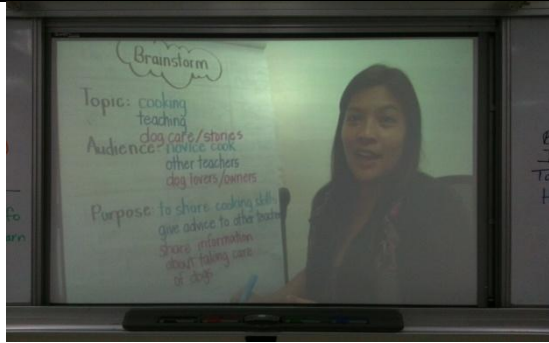 Brainstorm
Topic: cooking
teaching
dog care/stories
Audience: novice cook
other teachers
dog lovers/owners
Purpose: to share cooking skills
give advice to other
share information
about taking care
of dogs
fo